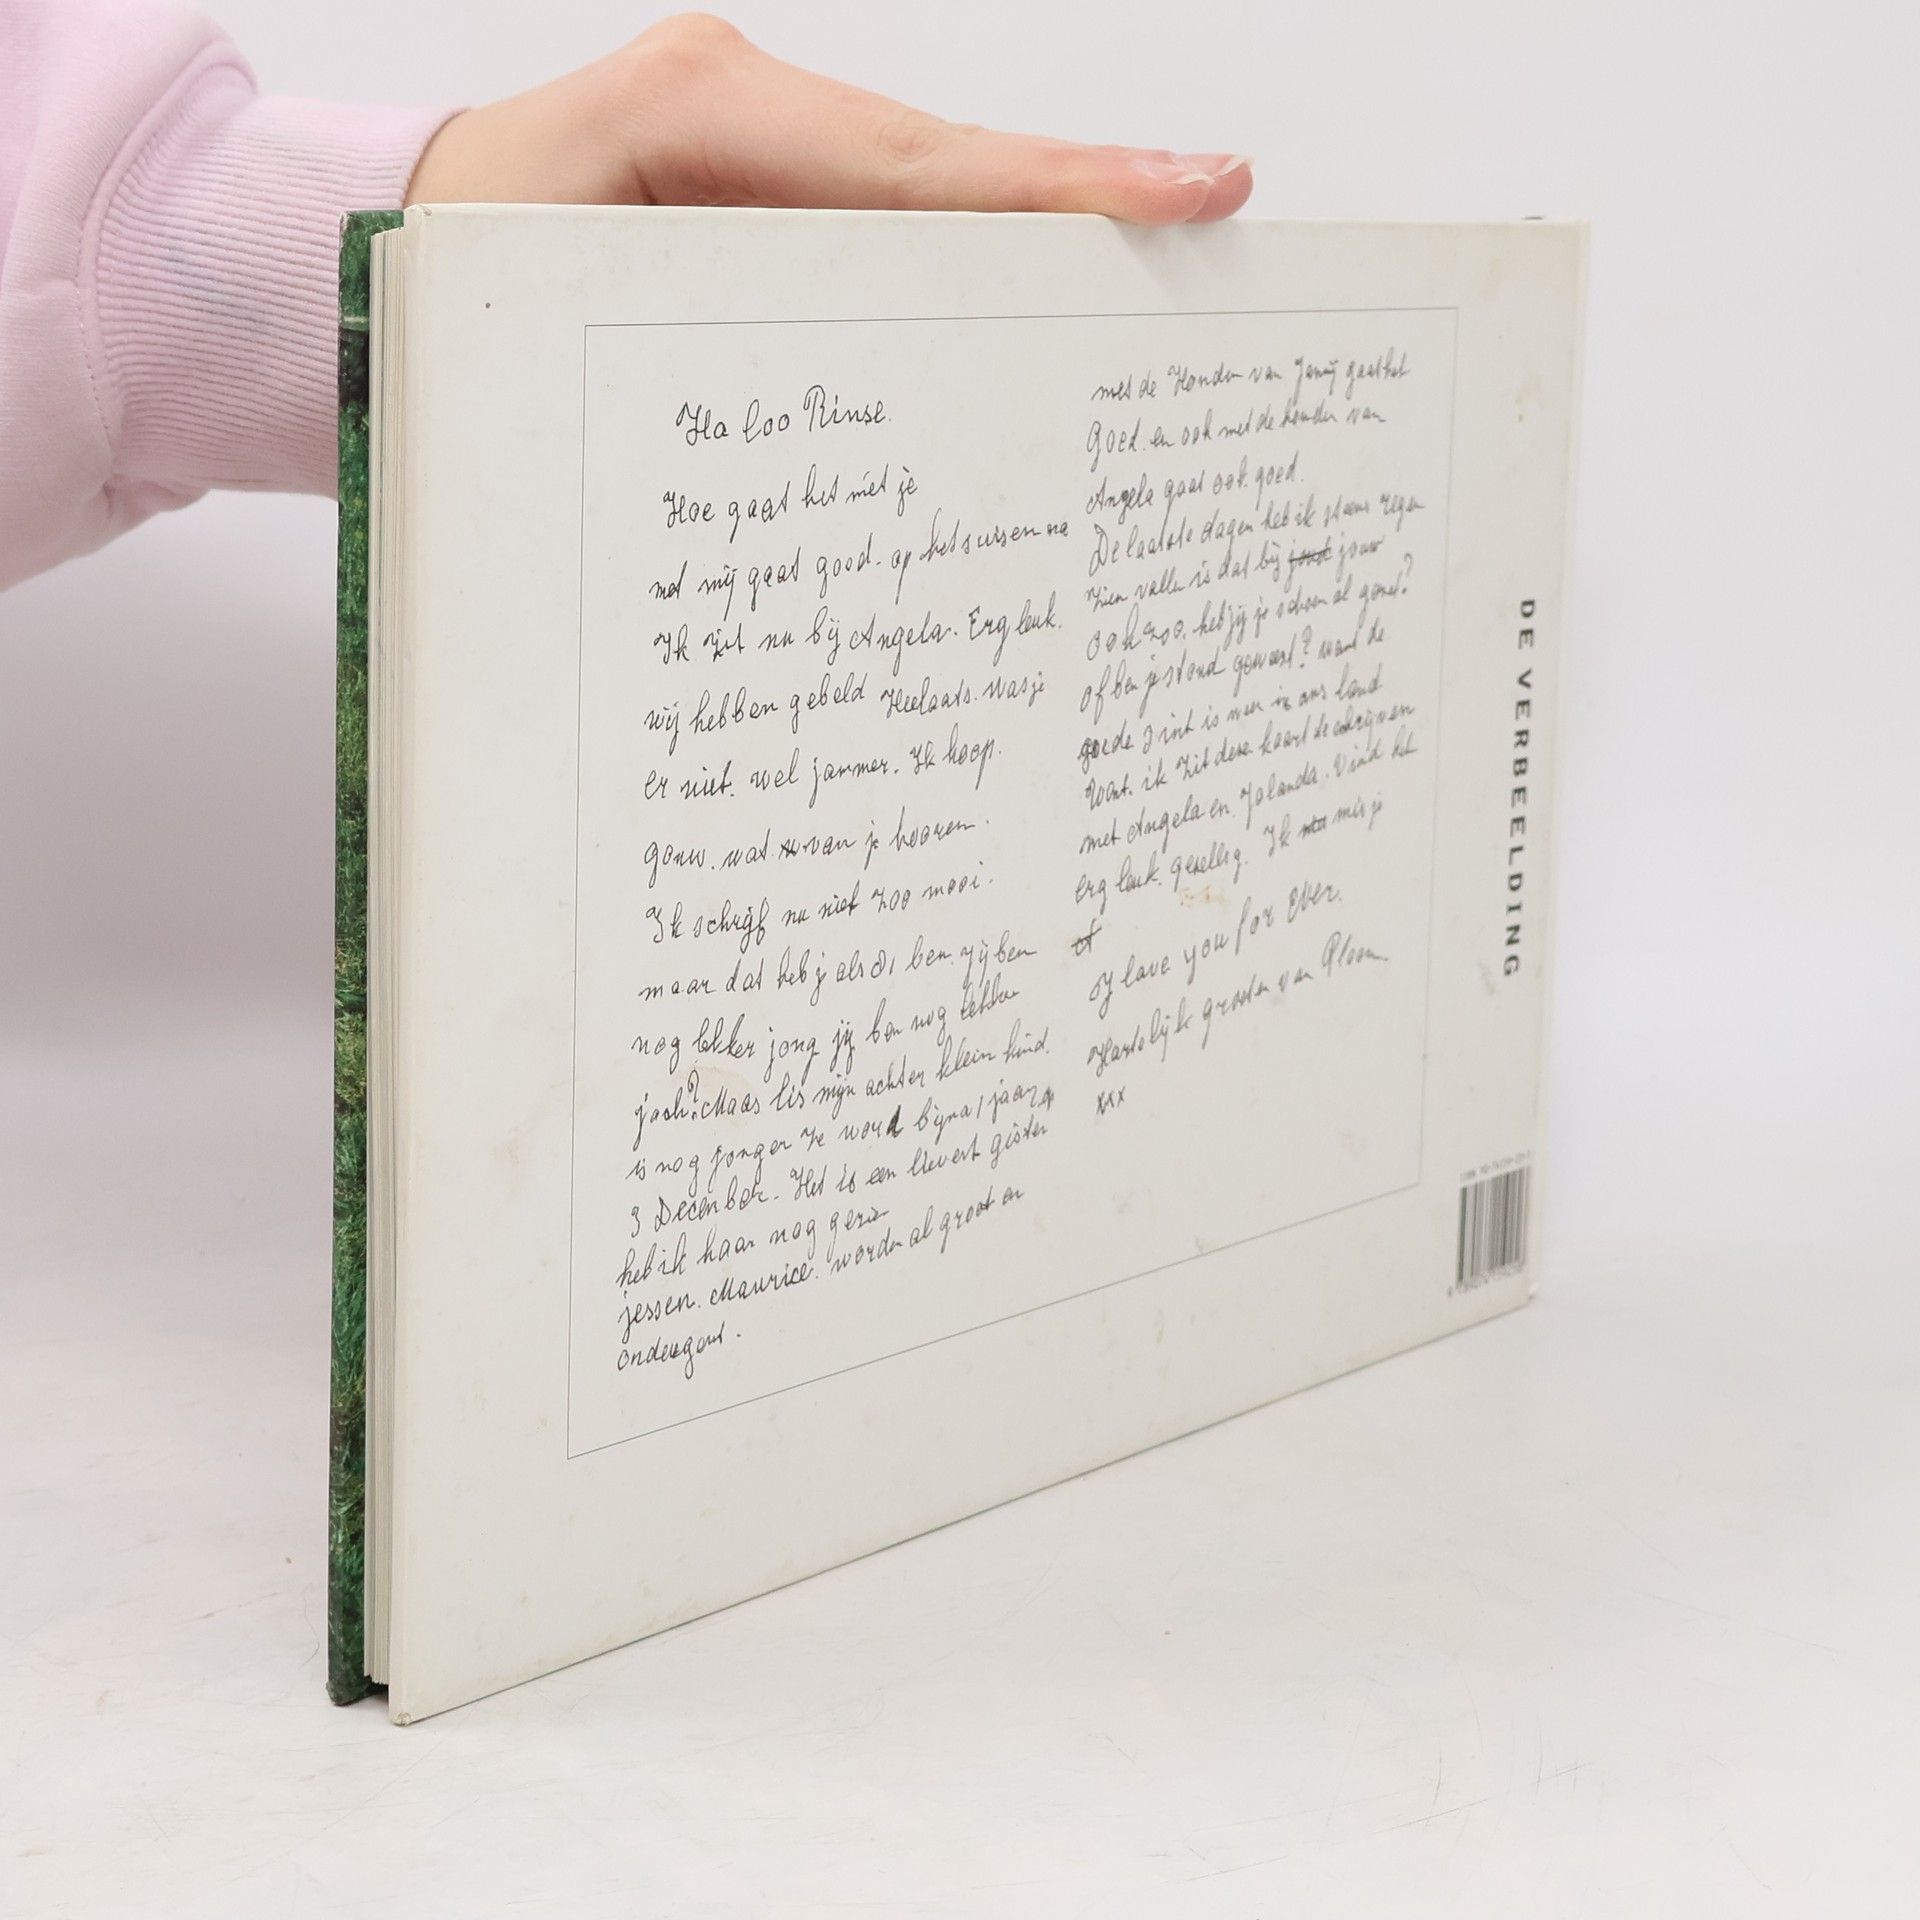 Ha loo Rinse.
Hoe gaat het met je
met mij gaat good. op het sussen na
Ik zit nu bij Angela. Erg leuk.
wij hebben gebeld Heelaats. was je
er niet. wel jammer. Ik hoop.
gouw. wat van je hooren.
Ik schrijf nu niet zoo mooi.
maar dat heb j als ben. jij ben
nog lekker jong jij ben nog
Maas is mijn achter klein kind.
is nog jonger ze word bijna 1 jaar
3 December. Het is een lievert gister
heb ik haar nog gezien
jessen. Maurice. worden al groot en
ondeugent.
met de Honden van Janny gaat het
Goed. en ook met de honden van
Angela gaat ook goed.
De laatste dagen heb ik steens regen
zien vallen is dat bij jouw
ook zoo. heb jij je schoen al gezet?
of ben je stoud geweest? want de
goede Sint is weer in ons land
Want. ik zit deze kaart de schrijven
met Angela en Jolanda. Vind het
erg leuk. gezellig. Ik mis je
of
I love you for ever.
Hartelijk groeten van Ploon.
xxx
DE VERBEELDING